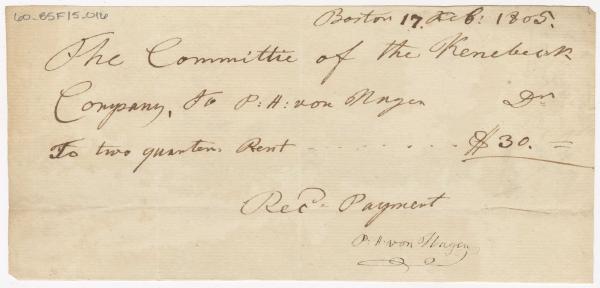 60_85F/5_016
Boston 17. Feb: 1805.
The Committie of the Kenebeck
Company, To P: H: von Hagen Dr
To two quarters Rent - - - - - - - $30. =
Recd. Payment
P: H: von Hagen